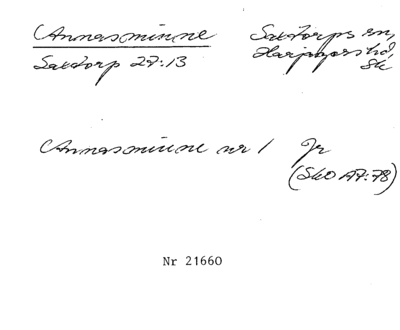 Annasminne
Saxtorp 27:13
Saxtorps sn,
Harjagers hd,
Sk
Annasminne nr 1 Jr
(SkO A7:78)
Nr 21660